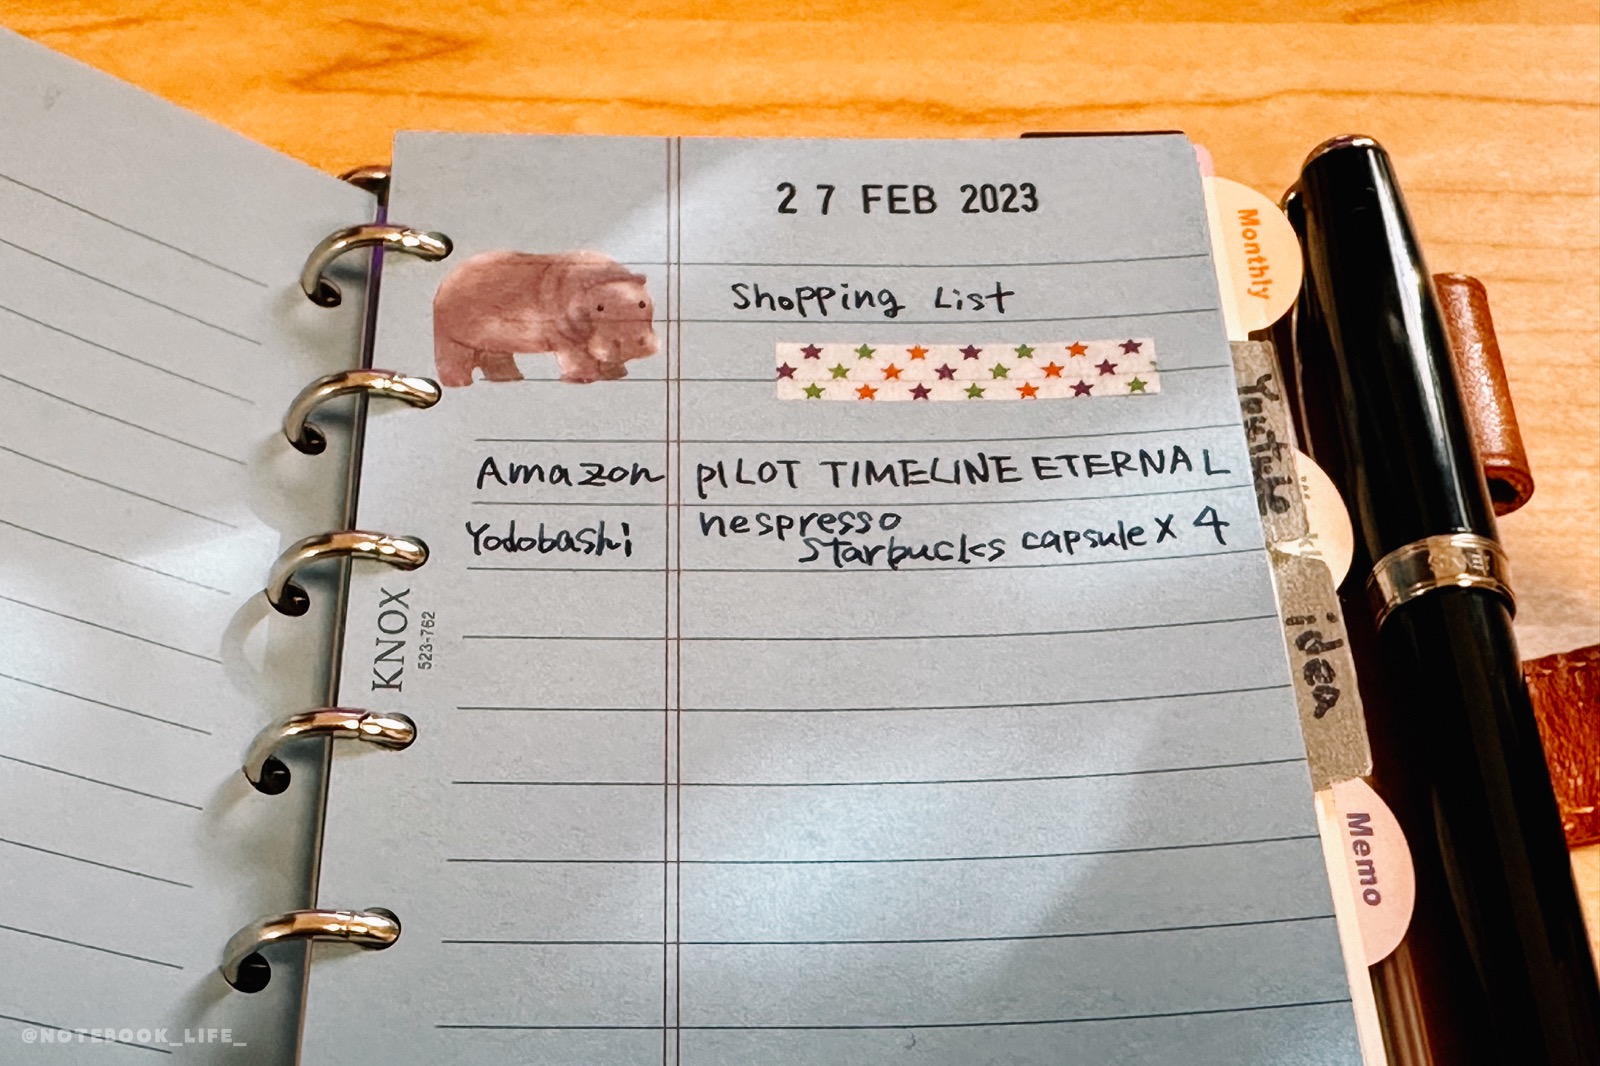 27 FEB 2023
Shopping List
Amazon PILOT TIMELINE ETERNAL
Yodobashi nespresso
Starbucks capsule X 4
KNOX
523-762
Monthly
idea
Memo
@NOTEBOOK_LIFE_